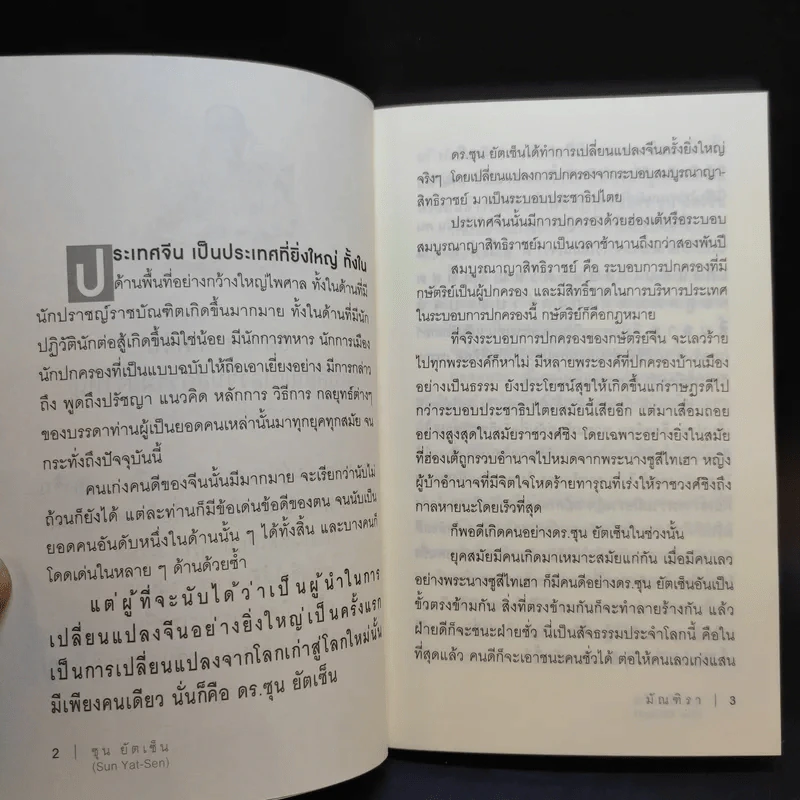 ประเทศจีน เป็นประเทศที่ยิ่งใหญ่ ทั้งใน
ด้านพื้นที่อย่างกว้างใหญ่ไพศาล ทั้งในด้านที่มี
นักปราชญ์ราชบัณฑิตเกิดขึ้นมากมาย ทั้งในด้านที่มีนัก
ปฏิวัตินักต่อสู้เกิดขึ้นมิใช่น้อย มีนักการทหาร นักการเมือง
นักปกครองที่เป็นแบบฉบับให้ถือเอาเยี่ยงอย่าง มีการกล่าว
ถึง พูดถึงปรัชญา แนวคิด หลักการ วิธีการ กลยุทธ์ต่างๆ
ของบรรดาท่านผู้เป็นยอดคนเหล่านั้นมาทุกยุคทุกสมัย จน
กระทั่งถึงปัจจุบันนี้
คนเก่งคนดีของจีนนั้นมีมากมาย จะเรียกว่านับไม่
ถ้วนก็ยังได้ แต่ละท่านก็มีข้อเด่นข้อดีของตน จนนับเป็น
ยอดคนอันดับหนึ่งในด้านนั้น ๆ ได้ทั้งสิ้น และบางคนก็
โดดเด่นในหลาย ๆ ด้านด้วยซ้ำ
แต่ผู้ที่จะนับได้ว่าเป็นผู้นำในการ
เปลี่ยนแปลงจีนอย่างยิ่งใหญ่เป็นครั้งแรก
เป็นการเปลี่ยนแปลงจากโลกเก่าสู่โลกใหม่นั้น
มีเพียงคนเดียว นั่นก็คือ ดร.ซุน ยัตเซ็น
2 | ซุน ยัตเซ็น
(Sun Yat-Sen)
ดร.ซุน ยัตเซ็นได้ทำการเปลี่ยนแปลงจีนครั้งยิ่งใหญ่
จริงๆ โดยเปลี่ยนแปลงการปกครองจากระบอบสมบูรณาญา-
สิทธิราชย์ มาเป็นระบอบประชาธิปไตย
ประเทศจีนนั้นมีการปกครองด้วยฮ่องเต้หรือระบอบ
สมบูรณาญาสิทธิราชย์มาเป็นเวลาช้านานถึงกว่าสองพันปี
สมบูรณาญาสิทธิราชย์ คือ ระบอบการปกครองที่มี
กษัตริย์เป็นผู้ปกครอง และมีสิทธิ์ขาดในการบริหารประเทศ
ในระบอบการปกครองนี้ กษัตริย์ก็คือกฎหมาย
ที่จริงระบอบการปกครองของกษัตริย์จีน จะเลวร้าย
ไปทุกพระองค์ก็หาไม่ มีหลายพระองค์ที่ปกครองบ้านเมือง
อย่างเป็นธรรม ยังประโยชน์สุขให้เกิดขึ้นแก่ราษฎรดีไป
กว่าระบอบประชาธิปไตยสมัยนี้เสียอีก แต่มาเสื่อมถอย
อย่างสูงสุดในสมัยราชวงศ์ชิง โดยเฉพาะอย่างยิ่งในสมัย
ที่ฮ่องเต้ถูกรวบอำนาจไปหมดจากพระนางซูสีไทเฮา หญิง
ผู้บ้าอำนาจที่มีจิตใจโหดร้ายทารุณที่เร่งให้ราชวงศ์ชิงถึง
กาลหายนะโดยเร็วที่สุด
ก็พอดีเกิดคนอย่างดร.ซุน ยัตเซ็นในช่วงนั้น
ยุคสมัยมีคนเกิดมาเหมาะสมัยแก่กัน เมื่อมีคนเลว
อย่างพระนางซูสีไทเฮา ก็มีคนดีอย่างดร.ซุน ยัตเซ็นอันเป็น
ขั้วตรงข้ามกัน สิ่งที่ตรงข้ามกันก็จะทำลายร้างกัน แล้ว
ฝ่ายดีก็จะชนะฝ่ายชั่ว นี่เป็นสัจธรรมประจำโลกนี้ คือใน
ที่สุดแล้ว คนดีก็จะเอาชนะคนชั่วได้ ต่อให้คนเลวเก่งแสน
มัณฑิรา | 3